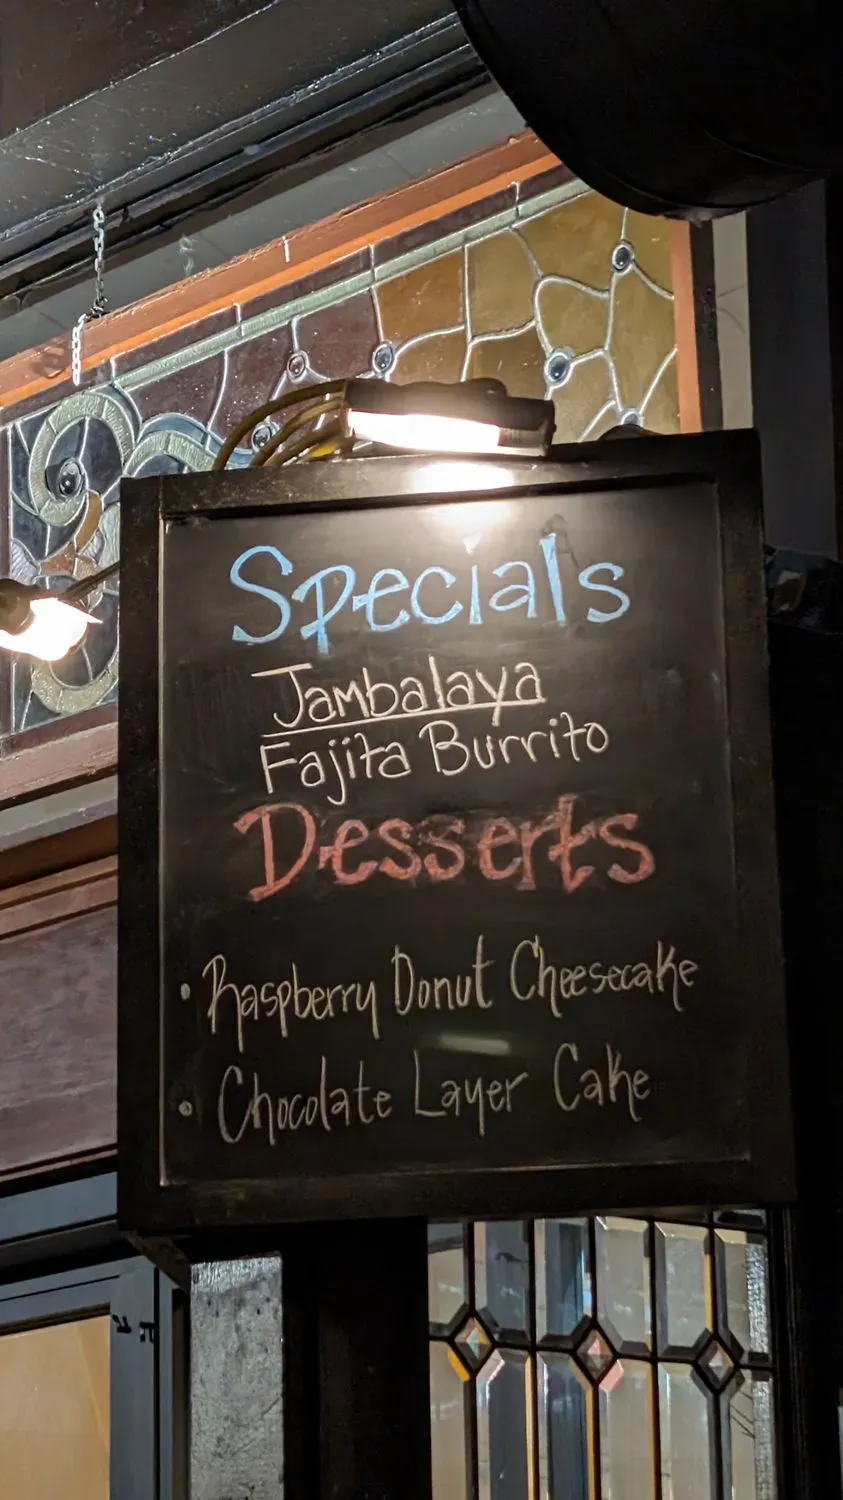 Specials
Jambalaya
Fajita Burrito
Desserts
• Raspberry Donut Cheesecake
• Chocolate Layer Cake